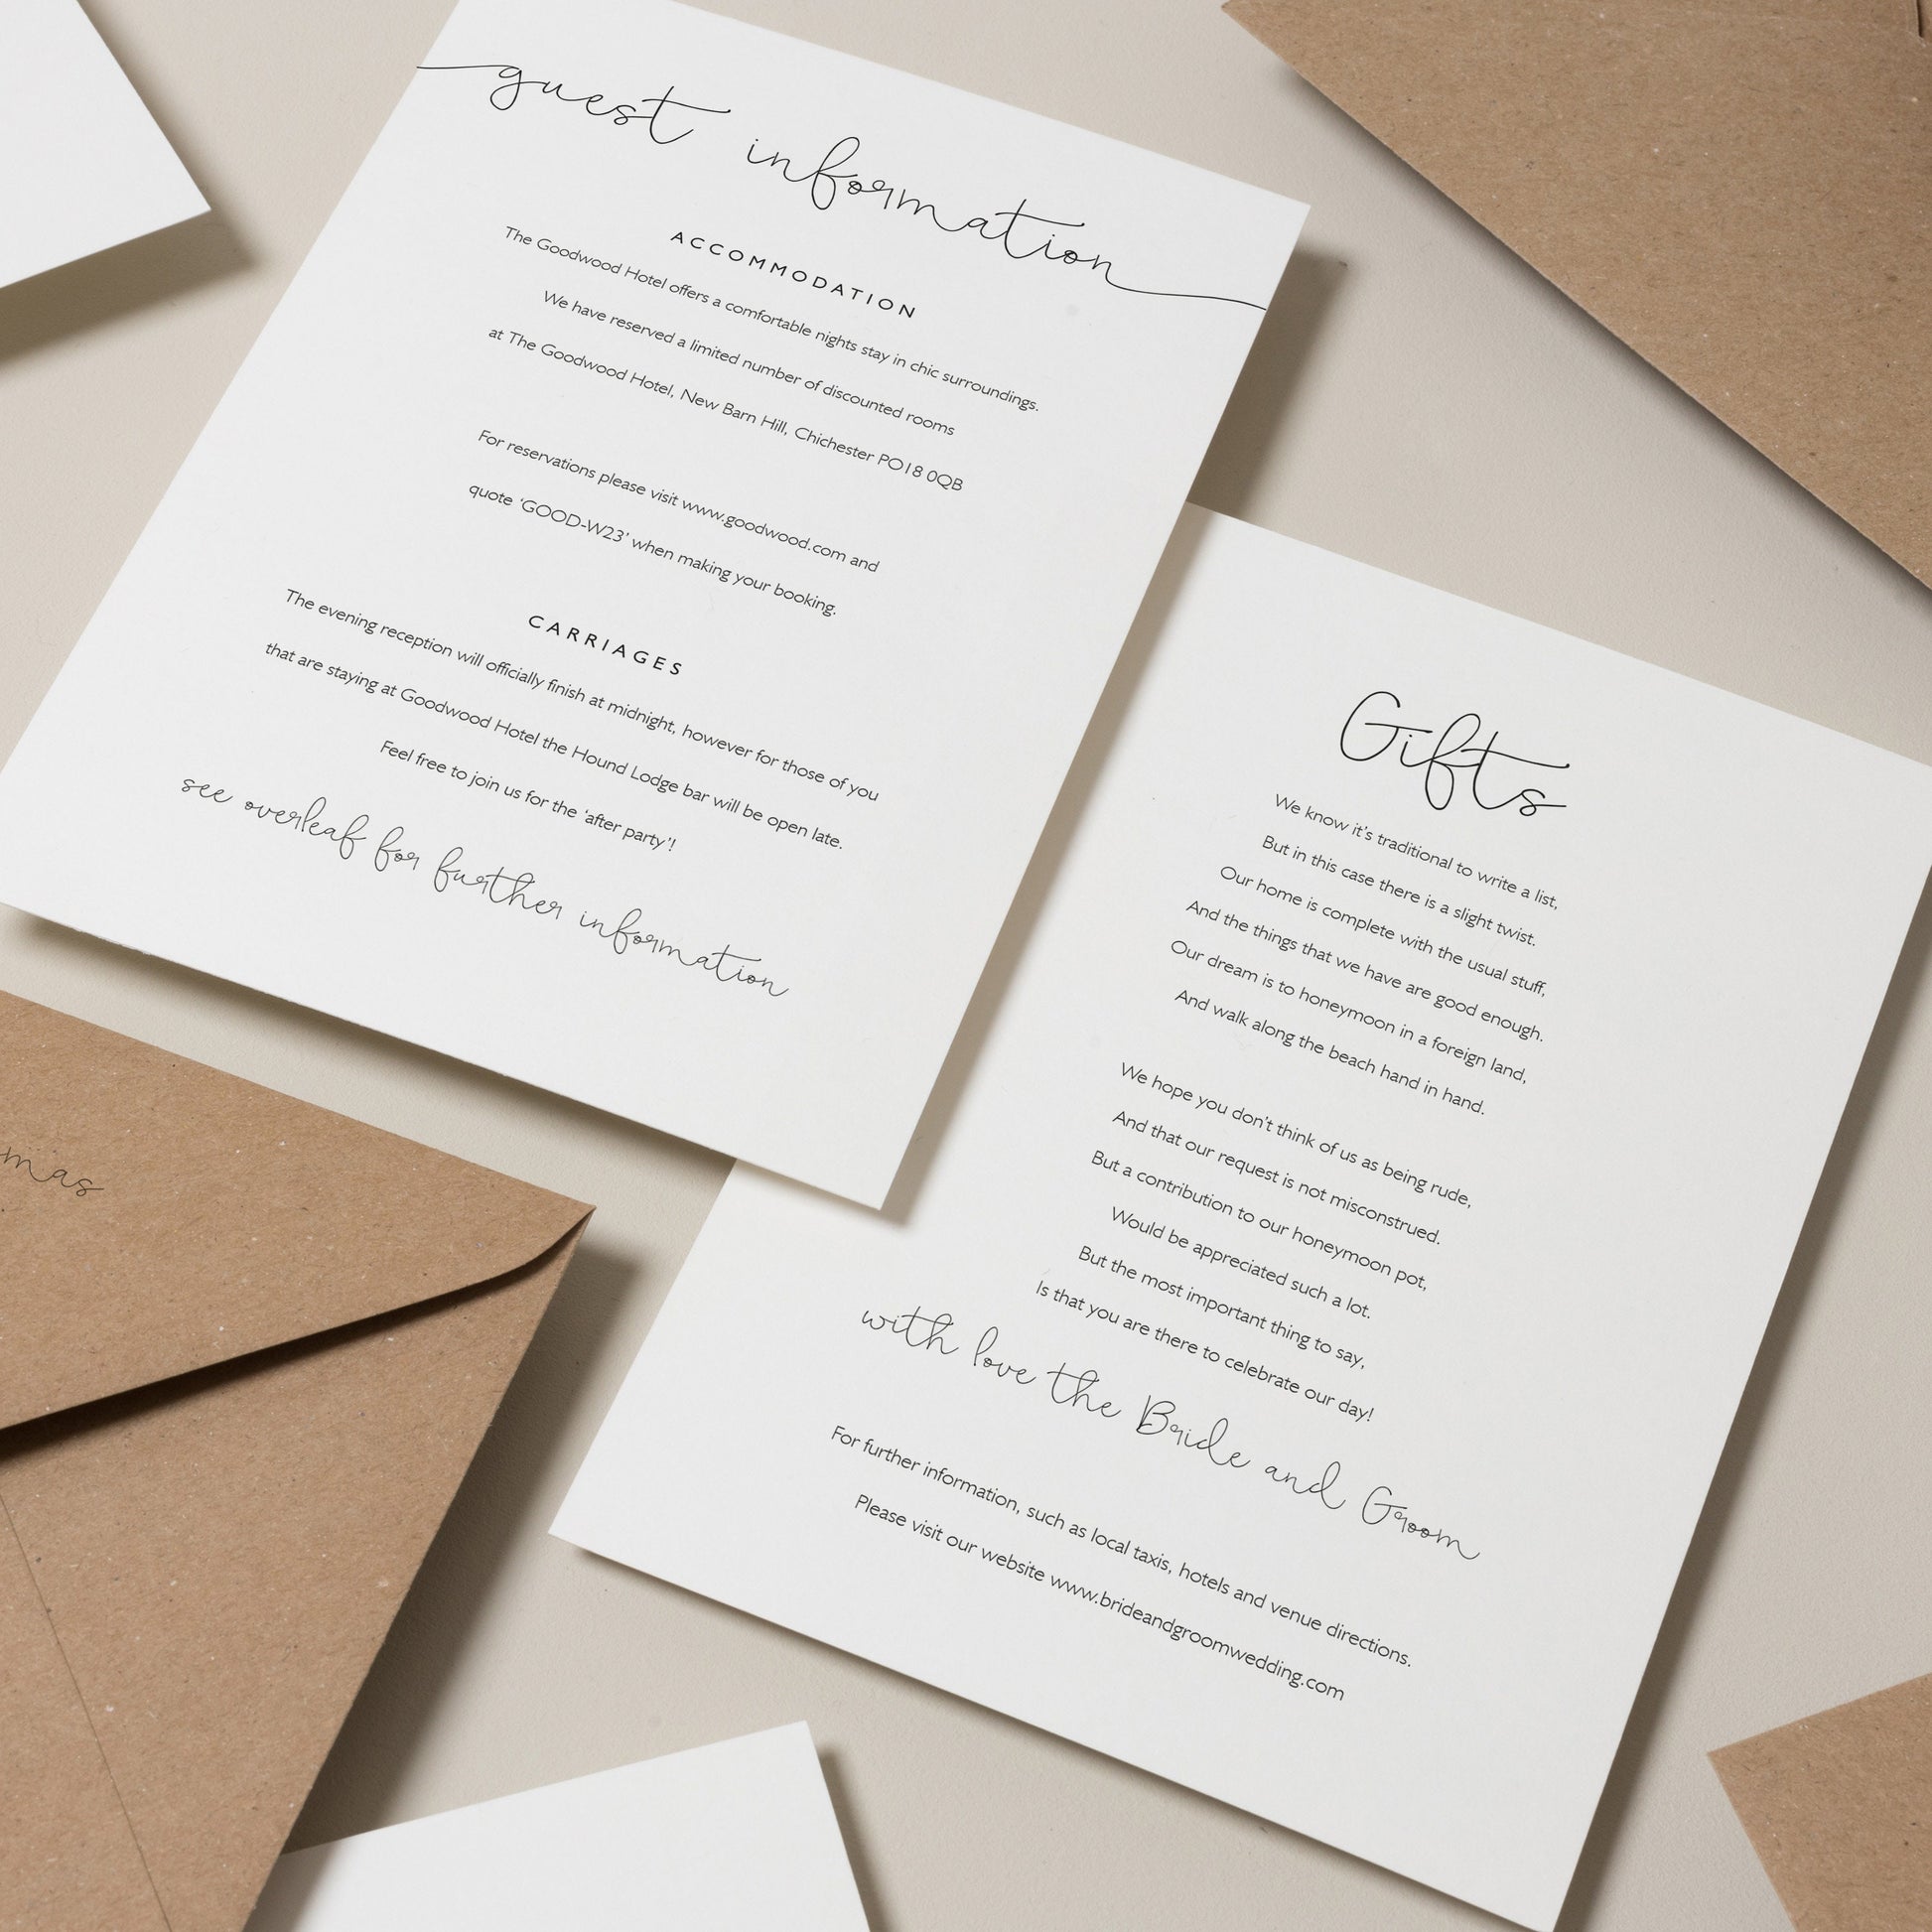 guest information
ACCOMMODATION
The Goodwood Hotel offers a comfortable nights stay in chic surroundings.
We have reserved a limited number of discounted rooms
at The Goodwood Hotel, New Barn Hill, Chichester PO18 0QB
For reservations please visit www.goodwood.com and
quote ‘GOOD-W23’ when making your booking.
CARRIAGES
The evening reception will officially finish at midnight, however for those of you
that are staying at Goodwood Hotel the Hound Lodge bar will be open late.
Feel free to join us for the ‘after party’!
see overleaf for further information
Gifts
We know it's traditional to write a list,
But in this case there is a slight twist.
Our home is complete with the usual stuff,
And the things that we have are good enough.
Our dream is to honeymoon in a foreign land,
And walk along the beach hand in hand.
We hope you don't think of us as being rude,
And that our request is not misconstrued.
But a contribution to our honeymoon pot,
Would be appreciated such a lot.
But the most important thing to say,
Is that you are there to celebrate our day!
with love the Bride and Groom
For further information, such as local taxis, hotels and venue directions.
Please visit our website www.brideandgroomwedding.com
mas